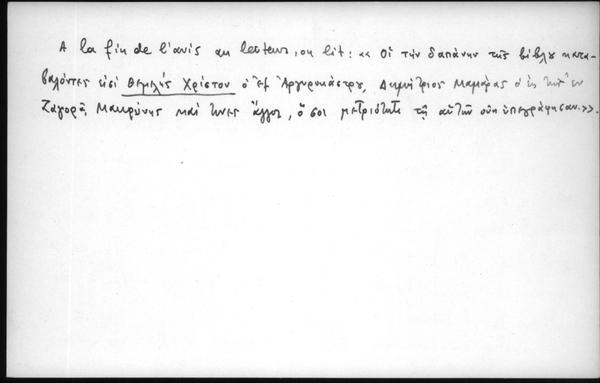 A la fin de l'avis au lecteur, on lit : « Οἱ τὴν δαπάνην τῆς βίβλου κατα-
βαλόντες εἰσὶ Θεμελῆς Χρίστου ὁ ἐξ Ἀργυροκάστρου, Δημήτριος Μαμάρας ὁ ἐκ τῆς ἐν
Ζαγορᾷ Μακρύνης καὶ τινες ἄλλοι, ὅσοι μετριότητι τῇ αὐτῶν οὐκ ὑπεγράφησαν. ».